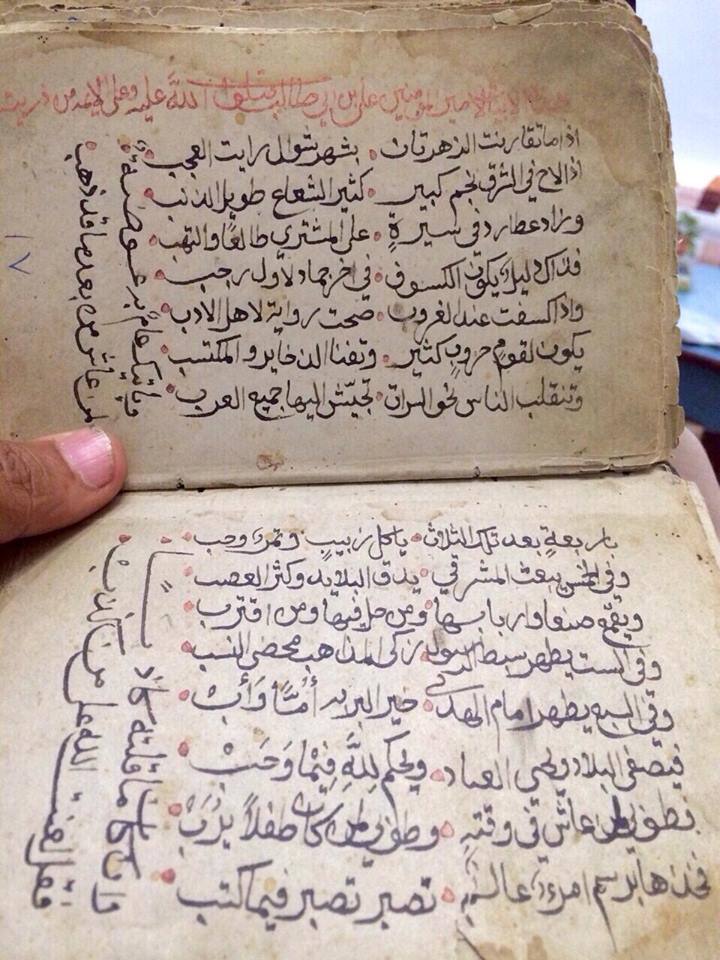 لأمير المؤمنين علي بن أبي طالب صلوات الله عليه وعلى الأئمة من ذريته
اذا ما تقارنت الزهرتان • بشهر شوال رايت العجب
اذا لاح في الشرق نجم كبير • كثير الشعاع طويل الذنب
وزاد عطارد في سيرةٍ • على المشتري طالعًا والتهب
فذاك دليل يكون الكسوف • في اخر جماد لاول رجب
واذا كسفت عند الغروب • صحت رواية لاهل الادب
يكون لقومٍ حروبٍ كثير • وتفنا الذخاير والمكتسب
وتنقلب الناس نحو السراة • تجيش اليها جميع العرب
لمن عاش من بعد ما قد ذهب
باربعةٍ بعد تلك الثلاث • ياكل زبيبٍ وتمرٍ وحب
وفي الخمس يبعث المشرقي • يدق البلاد وكثر العصب
ويقع صنعا واربابها • ومن حل فيها ومن اقترب
وفي الست يظهر سبط الرسول • زكي المذاهب محض النسب
وفي السبع يظهر امام الهدى • خير البريه أُمًّا وَأَبْ
فيصفي البلاد ويحي العباد • ويحكم لِلَّهِ فِيمَا وَجَبْ
فطوبى لمن عاش في وقته • وطوبى لمن كان طفلاً يُرَبْ
فخذها برسم امرءٍ عالمٍ • تصبر تصبر فيما كتب
وان كان ما قلته كاذب
فقل لعنت الله على من كذب